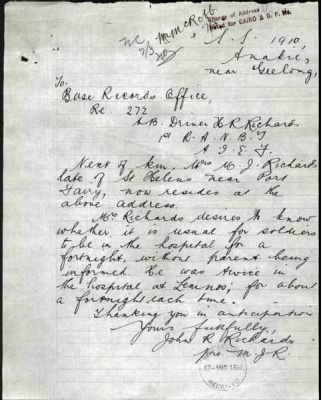 Change of Address
Noted for CAIRO & D.F.M.
McRobb
S.S. 1910,
Anakie,
near Geelong,
To
Base Records Office,
Re. 272
A.B. Driver H R Richards
1st R. A. N. B. T
A. I. E. F.
Next of kin, Mrs M. J. Richards
late of St Helens near Port
Fairy, now resides at the
above address.
Mrs Richards desires to know
whether it is usual for soldiers
to be in the hospital for a
fortnight, without parent being
informed he was twice in
the hospital at Lemnos; for about
a fortnight each time.
Thanking you in anticipation
Yours faithfully,
John R Richards
pro M.J.R.
RECEIVED